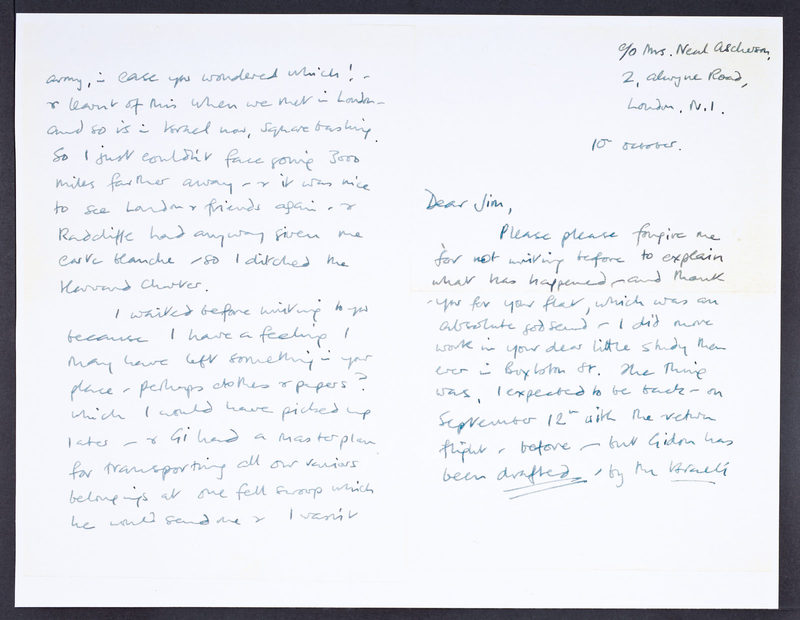 c/o Mrs. Neal Ascherson,
2, Alwyne Road,
London. N.1.
10 October.
Dear Jim,
Please please forgive me
for not writing before to explain
what has happened - and thank
you for your flat, which was an
absolute godsend - I did more
work in your dear little study than
ever in St. The thing
was, I expected to be back - on
September 12th with the return
flight - before - but Gidon has
been drafted - by the Israeli
army, in case you wondered which! -
& learnt of this when we met in London -
and so is in Israel now, square bashing.
So I just couldn't face going 3000
miles farther away - & it was nice
to see London & friends again - &
Radcliffe had anyway given me
carte blanche - so I ditched the
Harvard Charter.
I waited before writing to you
because I have a feeling I
may have left something in your
place - perhaps clothes & papers?
which I would have picked up
later - & Gi had a masterplan
for transporting all our various
belongings at one fell swoop which
he would send me & I wasn't